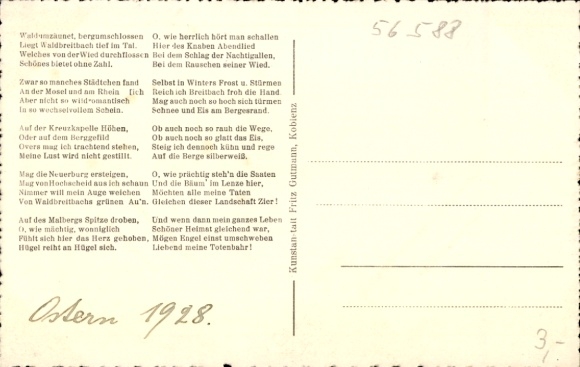 Waldumzäunet, bergumschlossen
Liegt Waldbreitbach tief im Tal.
Welches von der Wied durchflossen
Schönes bietet ohne Zahl.
Zwar so manches Städtchen fand
An der Mosel und am Rhein [ich
Aber nicht so wild-romantisch
In so wechselvollem Schein.
Auf der Kreuzkapelle Höhen,
Oder auf dem Berggefild
Overs mag ich trachtend stehen,
Meine Lust wird nicht gestillt.
Mag die Neuerburg ersteigen,
Mag von Hochscheid aus ich schaun
Nimmer will mein Auge weichen
Von Waldbreitbachs grünen Au'n.
Auf des Malbergs Spitze droben,
O, wie mächtig, wonniglich
Fühlt sich hier das Herz gehoben,
Hügel reiht an Hügel sich.
O, wie herrlich hört man schallen
Hier des Knaben Abendlied
Bei dem Schlag der Nachtigallen,
Bei dem Rauschen seiner Wied.
Selbst in Winters Frost u. Stürmen
Reich ich Breitbach froh die Hand
Mag auch noch so hoch sich türmen
Schnee und Eis am Bergesrand.
Ob auch noch so rauh die Wege,
Ob auch noch so glatt das Eis,
Steig ich dennoch kühn und rege
Auf die Berge silberweiß.
O, wie prüchtig steh'n die Saaten
Und die Bäum' im Lenze hier,
Möchten alle meine Taten
Gleichen dieser Landschaft Zier!
Und wenn dann mein ganzes Leben
Schöner Heimat gleichend war,
Mögen Engel einst umschweben
Liebend meine Totenbahr!
Kunstanstalt Fritz Guttmann, Koblenz
56 588
Ostern 1928.
3,-